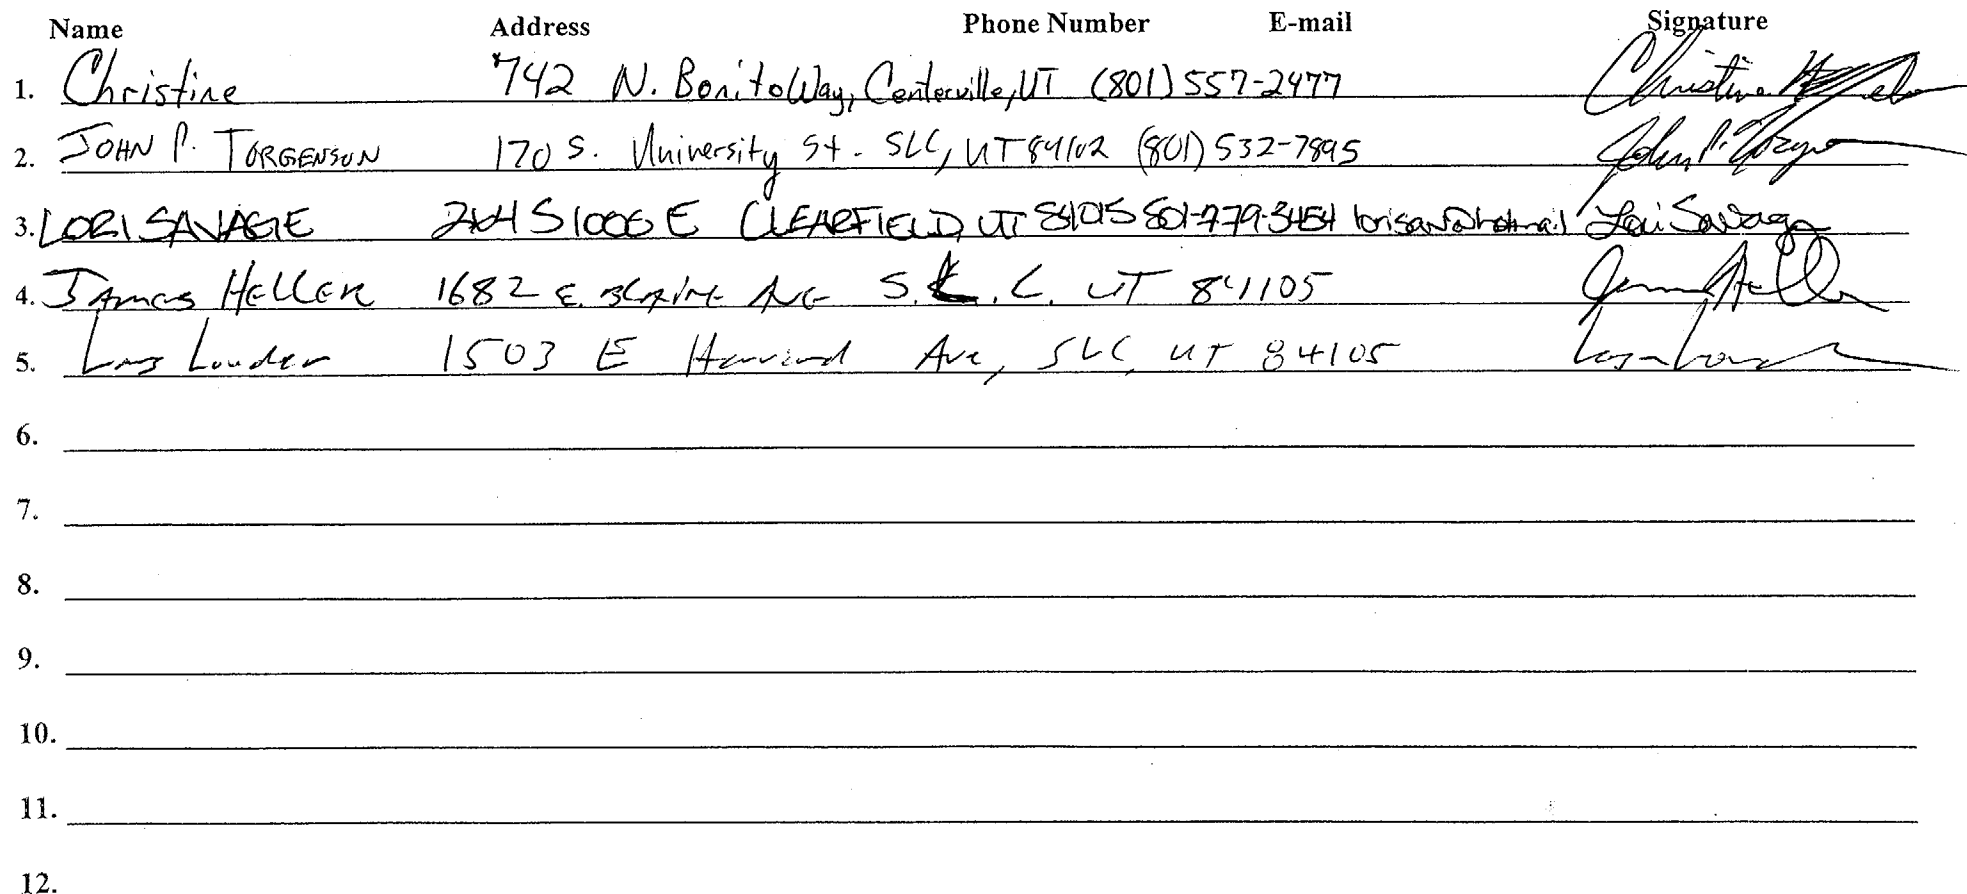 Name Address Phone Number E-mail Signature
1. Christine 742 N. Bonito Way, Centerville, UT (801) 557-2477 Christine
2. JOHN P. TORGENSON 170 S. University St. SLC, UT 84102 (801) 532-7895 John P.
3. LORI SAVAGE S 1000 E CLEARFIELD, UT 84015 801-779-3454 Lori Savage
4. James Heller 1682 E. Ave S.L.C. UT 84105 Heller
5. Lars Louder 1503 E Harvard Ave, SLC, UT 84105
6.
7.
8.
9.
10.
11.
12.